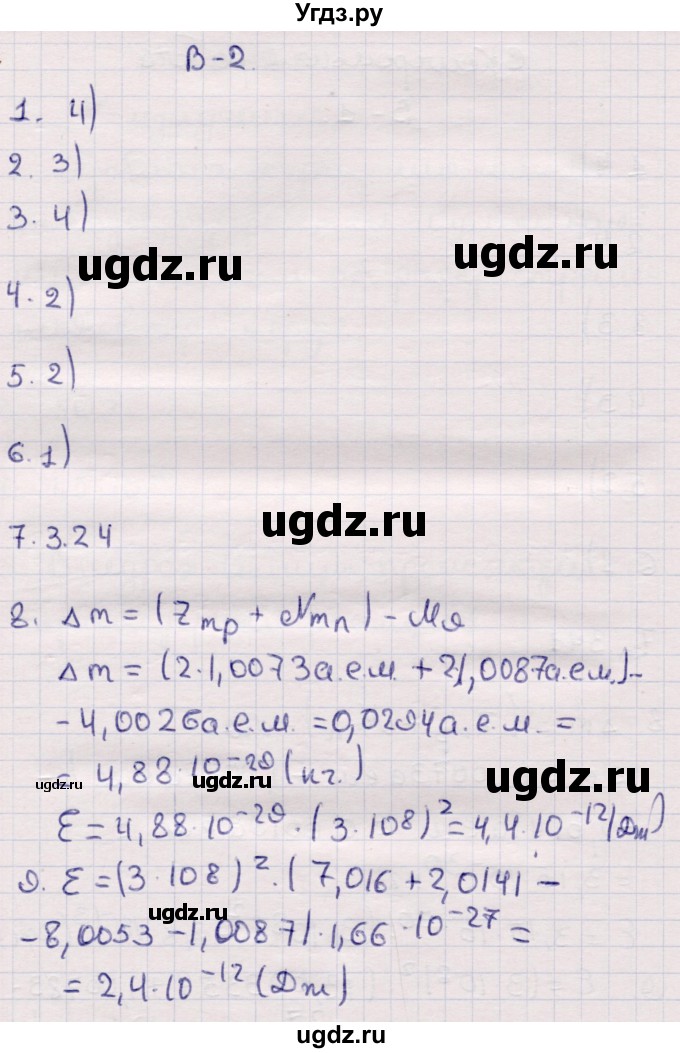 Угдз.ру
В-2.
1. 4)
2. 3)
3. 4)
ugdz.ru
ugdz.ru
4. 2)
5. 2)
6. 1)
ugdz.ru
7. 3.24
8. Δm = (Zmp + Nmn) - Mя
Δm = (2·1,0073а.е.м. + 2·1,0087а.е.м.) -
- 4,0026а.е.м. = 0,0294а.е.м. =
= 4,88·10⁻²⁹ (кг.)
ugdz.ru
ugdz.ru
ugdz.ru
E = 4,88·10⁻²⁹·(3·108)² = 4,4·10⁻¹² (Дж)
9. E = (3·108)²·(7,016 + 2,0141 -
ugdz.ru
- 8,0053 - 1,0087)·1,66·10⁻²⁷ =
= 2,4·10⁻¹² (Дж)
ugdz.ru